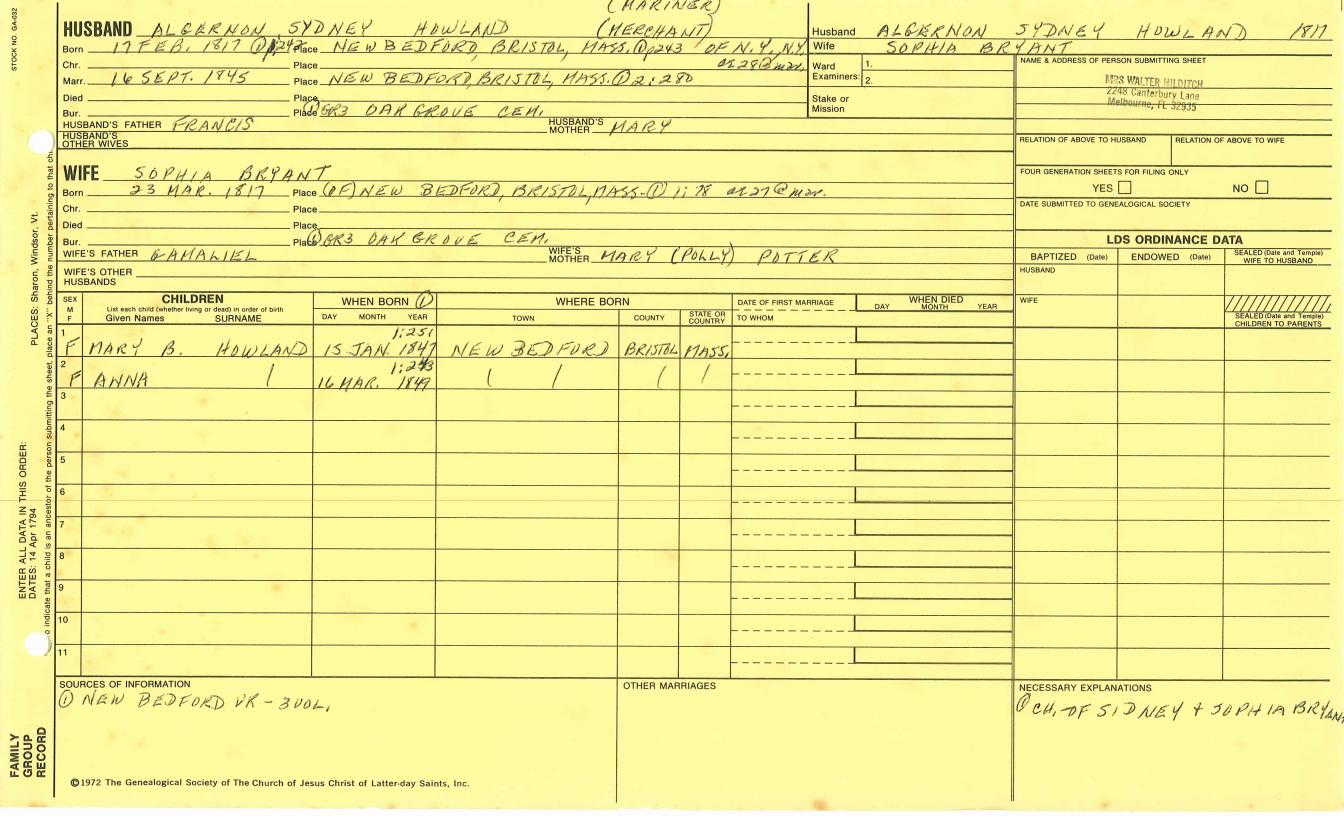 (MARINER)
STOCK NO. GA-032
HUSBAND ALGERNON SYDNEY HOWLAND (MERCHANT)
Born 17 FEB. 1817 ① Place NEW BEDFORD, BRISTOL, MASS. ① p243 OF N.Y., N.Y.
Chr. Place at 28 @ mar.
Marr. 16 SEPT. 1845 Place NEW BEDFORD, BRISTOL, MASS. ① 2:280
Died Place
Bur. Place ① GR3 OAK GROVE CEM.
HUSBAND'S FATHER FRANCIS HUSBAND'S MOTHER MARY
HUSBAND'S OTHER WIVES
WIFE SOPHIA BRYANT
Born 23 MAR. 1817 Place (OF) NEW BEDFORD, BRISTOL, MASS. ① 1:78 at 27 @ mar.
Chr. Place
Died Place
Bur. Place ① GR3 OAK GROVE CEM.
WIFE'S FATHER GAMALIEL WIFE'S MOTHER MARY (POLLY) POTTER
WIFE'S OTHER HUSBANDS
Husband ALGERNON SYDNEY HOWLAND 1817
Wife SOPHIA BRYANT
Ward Examiners: 1.
2.
Stake or Mission
NAME & ADDRESS OF PERSON SUBMITTING SHEET
MRS WALTER HILDITCH
2248 Canterbury Lane
Melbourne, FL 32935
RELATION OF ABOVE TO HUSBAND RELATION OF ABOVE TO WIFE
FOUR GENERATION SHEETS FOR FILING ONLY
YES NO
DATE SUBMITTED TO GENEALOGICAL SOCIETY
LDS ORDINANCE DATA
BAPTIZED (Date) ENDOWED (Date) SEALED (Date and Temple) WIFE TO HUSBAND
HUSBAND
WIFE
SEALED (Date and Temple) CHILDREN TO PARENTS
SEX M F
CHILDREN
List each child (whether living or dead) in order of birth
Given Names SURNAME
WHEN BORN ①
DAY MONTH YEAR
WHERE BORN
TOWN COUNTY STATE OR COUNTRY
DATE OF FIRST MARRIAGE
TO WHOM
WHEN DIED
DAY MONTH YEAR
1 1:251
F MARY B. HOWLAND 15 JAN 1847 NEW BEDFORD BRISTOL MASS.
2 1:243
F ANNA 16 MAR. 1849
3
4
5
6
7
8
9
10
11
SOURCES OF INFORMATION
① NEW BEDFORD VR - 3 VOL.
OTHER MARRIAGES
NECESSARY EXPLANATIONS
① CH. OF SIDNEY + SOPHIA BRYANT
©1972 The Genealogical Society of The Church of Jesus Christ of Latter-day Saints, Inc.
FAMILY GROUP RECORD
ENTER ALL DATA IN THIS ORDER:
DATES: 14 Apr 1794
PLACES: Sharon, Windsor, Vt.
o indicate that a child is an ancestor of the person submitting the sheet, place an "X" behind the number pertaining to that ch